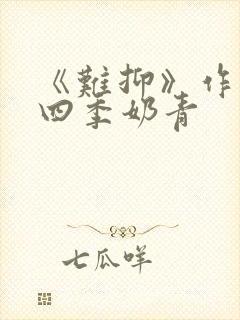 《難抑》作
四季奶青
七瓜咩